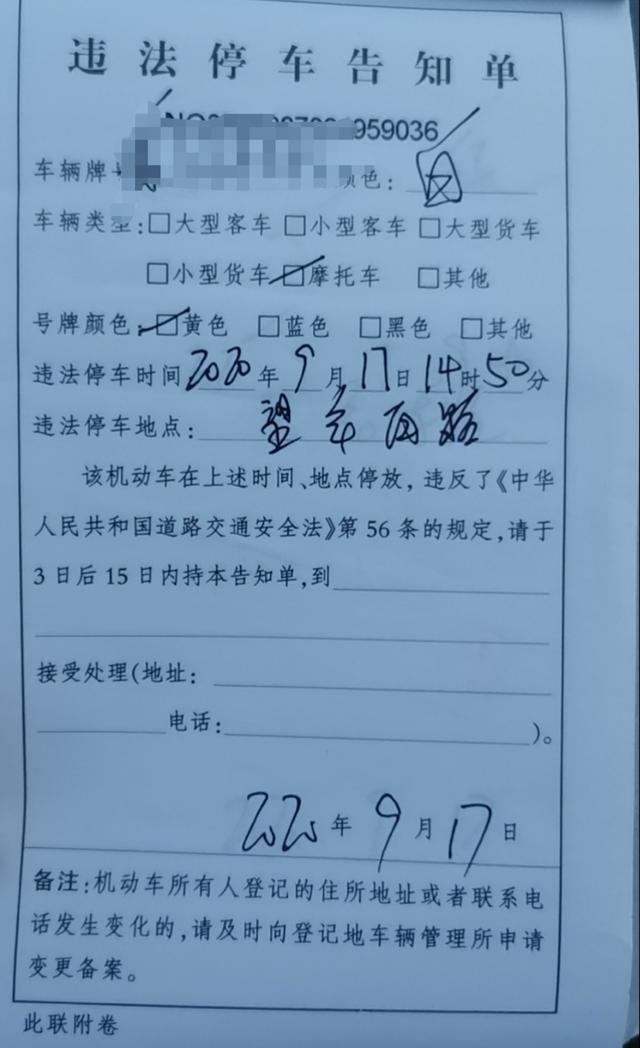 违法停车告知单
959036
车辆牌 颜色:
车辆类型:□大型客车 □小型客车 □大型货车
□小型货车 □摩托车 □其他
号牌颜色:□黄色 □蓝色 □黑色 □其他
违法停车时间 2020年 9月 17日 14时 50分
违法停车地点: 路
该机动车在上述时间、地点停放,违反了《中华
人民共和国道路交通安全法》第 56 条的规定,请于
3 日后 15 日内持本告知单,到
接受处理(地址:
电话: )。
2020年 9月 17日
备注:机动车所有人登记的住所地址或者联系电
话发生变化的,请及时向登记地车辆管理所申请
变更备案。
此联附卷